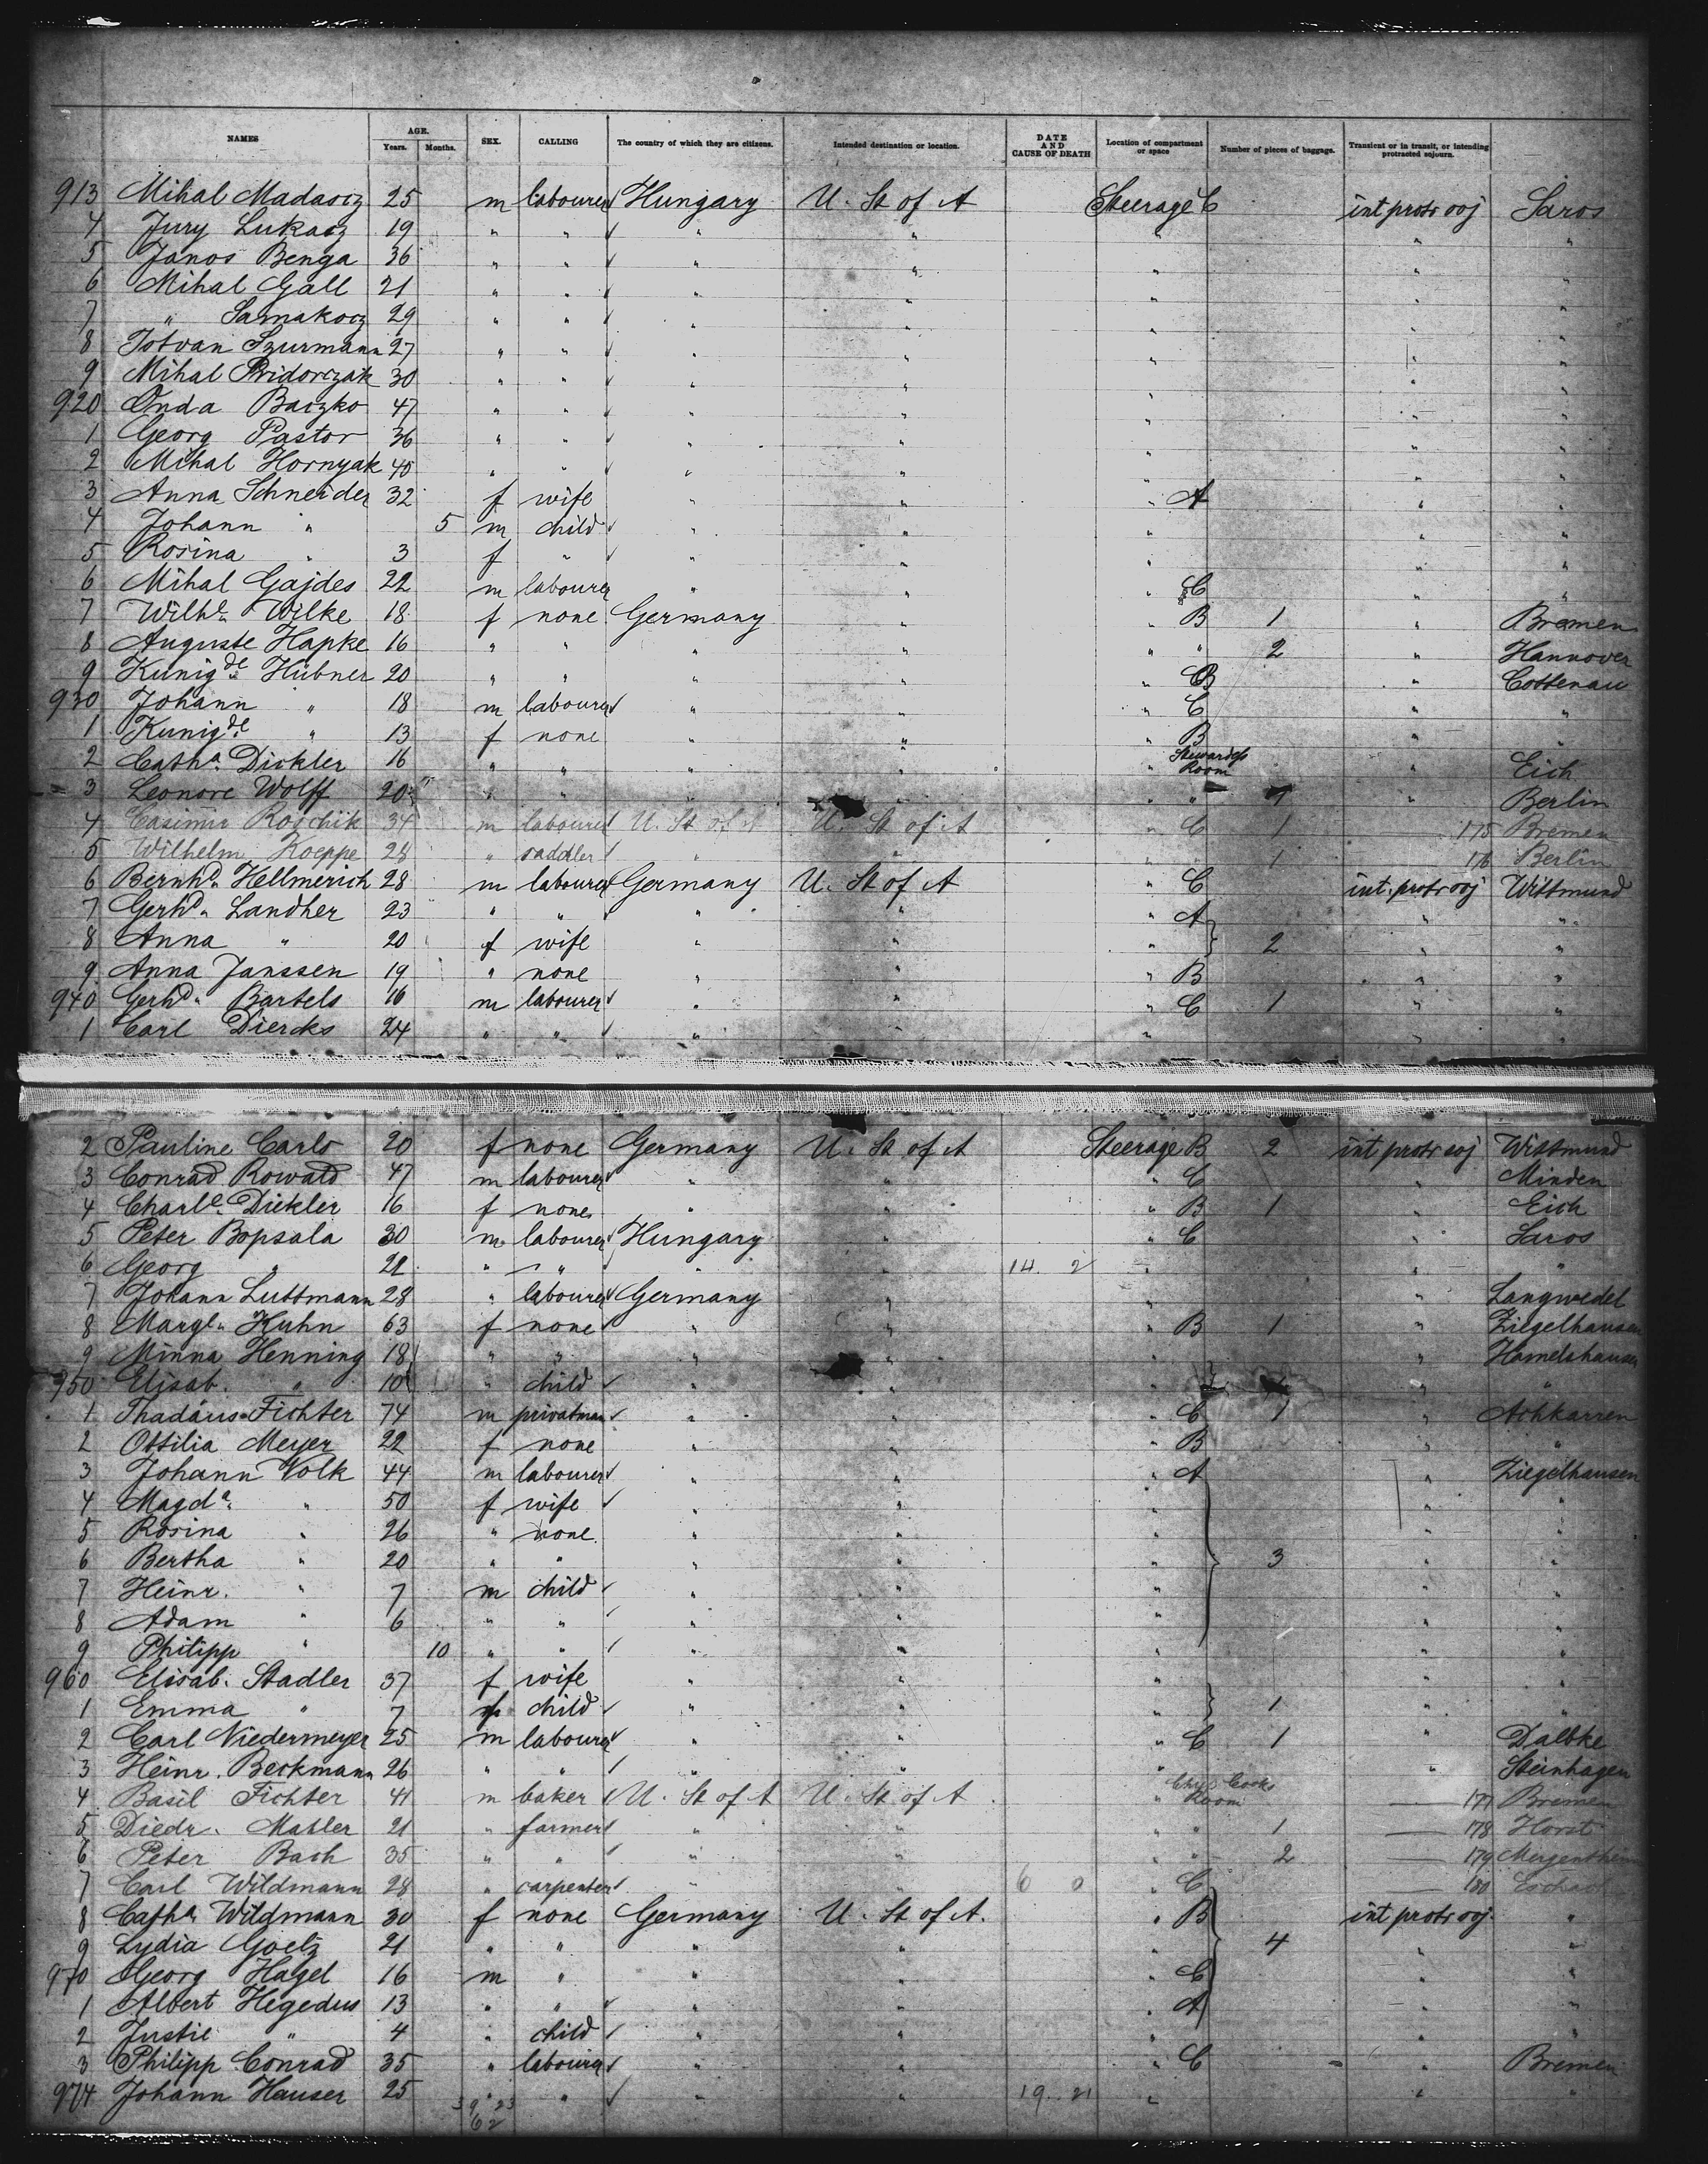 NAMES AGE. Years. Months. SEX. CALLING The country of which they are citizens. Intended destination or location. DATE AND CAUSE OF DEATH Location of compartment or space Number of pieces of baggage. Transient or in transit, or intending protracted sojourn.
913 Mihal Madarcz 25 m labourer Hungary U. St of A Steerage C int protr soj Saros
4 Jury Lukacz 19 " " " " " " "
5 Janos Benga 36 " " " " " " "
6 Mihal Gall 21 " " " " " " "
7 " Samakocz 29 " " " " " " "
8 Istvan Szurmann 27 " " " " " " "
9 Mihal Pridorczak 30 " " " " " " "
920 Onda Baczko 47 " " " " " " "
1 Georg Pastor 36 " " " " " " "
2 Mihal Hornyak 40 " " " " " " "
3 Anna Schneider 32 f wife " " " A " "
4 Johann " 5 m child " " " " "
5 Rosina " 3 f " " " " " "
6 Mihal Gajdes 22 m labourer " " " C " "
7 Wilhe. Wilke 18 f none Germany " " B 1 " Bremen
8 Auguste Hapke 16 " " " " " " 2 " Hannover
9 Kunigde. Hübner 20 " " " " " B " Cottenau
930 Johann " 18 m labourer " " " C " "
1 Kunigde. " 13 f none " " " B " "
2 Catha. Dickler 16 " " " " " Stewardess Room " Eich
3 Leonore Wolff 20 " " " " " " 1 " Berlin
4 Casimir Rojchik 34 m labourer U. St of A U. St of A " C 1 175 Bremen
5 Wilhelm Koeppe 28 " saddler " " " " 1 176 Berlin
6 Bernhd. Hellmerich 28 m labourer Germany U. St of A " C int. protr soj Wittmund
7 Gerhd. Landher 23 " " " " " A " "
8 Anna " 20 f wife " " " 2 " "
9 Anna Janssen 19 " none " " " B " "
940 Gerhd. Bartels 16 m labourer " " " C 1 " "
1 Carl Diercks 24 " " " " " " "
2 Pauline Carls 20 f none Germany U. St of A Steerage B 2 int protr soj Wittmund
3 Conrad Rowald 47 m labourer " " " C " Minden
4 Charle. Dickler 16 f none " " " B 1 " Eich
5 Peter Bopsala 30 m labourer Hungary " " C " Saros
6 Georg " 22 " " " " 14 2 " " "
7 Johann Luttmann 28 " labourer Germany " " " Langwedel
8 Margt. Kuhn 63 f none " " " B 1 " Ziegelhausen
9 Minna Henning 18 " " " " " " Hamelshausen
950 Elisab. " 10 " child " " " " "
1 Thadäus Fichter 74 m privatman " " " C 1 " Achkarren
2 Ottilia Meyer 22 f none " " " B " "
3 Johann Volk 44 m labourer " " " A " Ziegelhausen
4 Magda. " 50 f wife " " " " "
5 Rosina " 26 " none " " " " "
6 Bertha " 20 " " " " " 3 " "
7 Heinr. " 7 m child " " " " "
8 Adam " 6 " " " " " " "
9 Philipp " 10 " " " " " " "
960 Elisab. Stadler 37 f wife " " " " "
1 Emma " 7 f child " " " 1 " "
2 Carl Niedermeyer 25 m labourer " " " C 1 " Dalbke
3 Heinr. Beckmann 26 " " " " " " Steinhagen
4 Basil Fichter 41 m baker U. St of A U. St of A " Cooks Room 177 Bremen
5 Diedr. Mahler 21 " farmer " " " " 1 178 Horst
6 Peter Bach 35 " " " " " " 2 179 Mergentheim
7 Carl Wildmann 28 " carpenter " " 6 0 " C 180 Eschach
8 Catha. Wildmann 30 f none Germany U. St of A. " B int protr soj. "
9 Lydia Goelz 21 " " " " " 4 " "
970 Georg Hagel 16 m " " " " C " "
1 Albert Hegedus 13 " " " " " A " "
2 Justie " 4 " child " " " " "
3 Philipp Conrad 35 " labourer " " " C " Bremen
974 Johann Hauser 25 " " " " 19 21 " " "
39 23
62